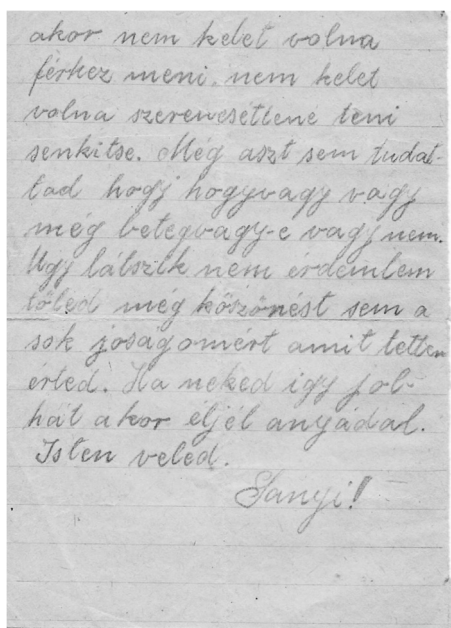 akor nem kelet volna
férhez meni, nem kelet
volna szerencsétlené teni
senkitse. Még aszt sem tudat-
tad hogj hogyvagy vagy
még betegvagy-e vagy nem.
Ugy látszik nem érdemlem
tőled még köszönést sem a
sok joságomért amit tettem
érted. Ha neked igy jol-
hát akor éljél anyádal.
Isten veled.
Sanyi!